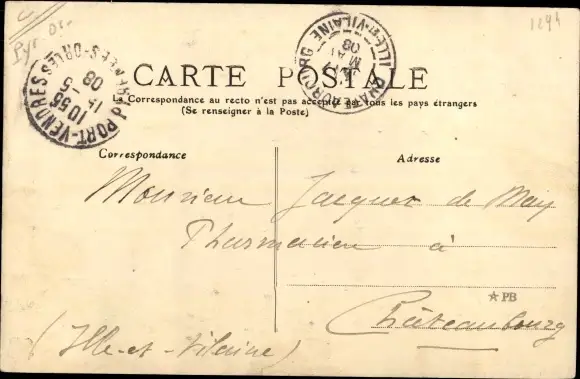 Pyr. Or.
1294
CARTE POSTALE
La Correspondance au recto n'est pas acceptée par tous les pays étrangers
(Se renseigner à la Poste)
PORT-VENDRES PYRÉNÉES-ORLES
10 55
14 - 5
08
CHATEAUBOURG ILLE-ET-VILAINE
MAI
08
Correspondance
Adresse
Monsieur Jacques de May
Pharmacien à
★ PB
Châteaubourg
(Ille-et-Vilaine)